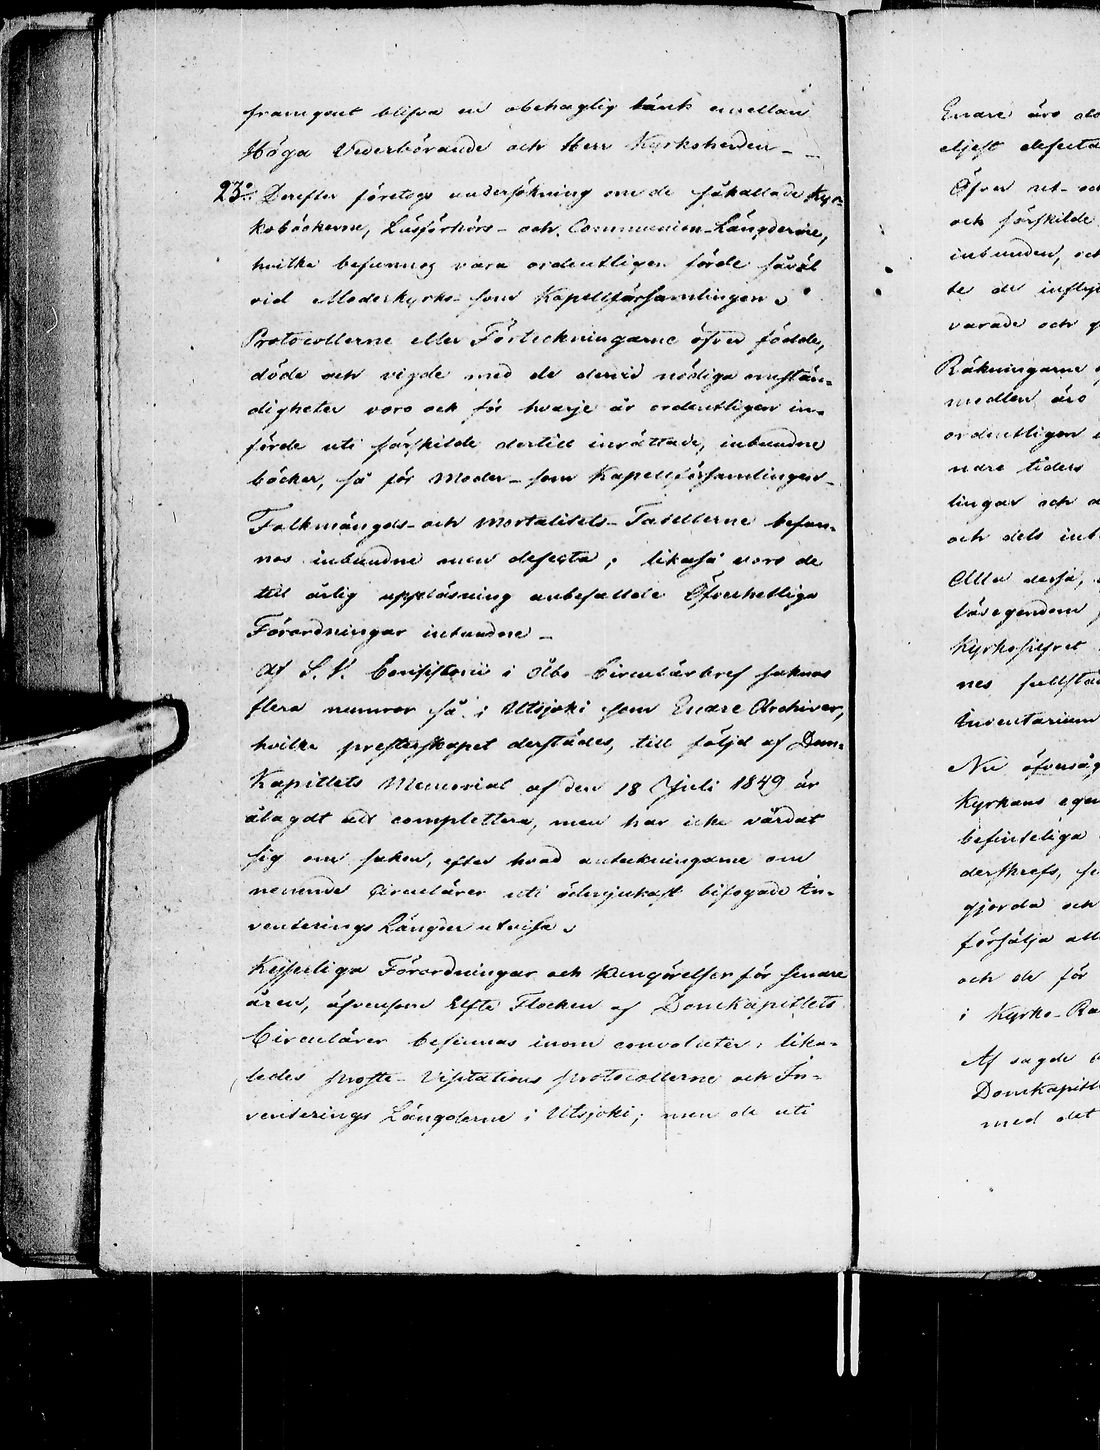 framgent blifva en obehaglig tänk emellan
Höga Vederbörande och Herr Kyrkoherden –
23:o Derefter företogs undersökning om de såkallade Kyr-
koböckerne, Läsförhörs- och Communion-Längderne,
hvilka befunnos vara ordentligen förde såväl
vid Moderkyrko- som Kapellförsamlingen.
Protocollerne eller Förteckningarne öfver födde,
döde och vigde med de dervid nödiga omstän-
digheter voro ock för hvarje år ordentligen in-
förde uti särskilde dertill inrättade, inbundne
böcker, så för Moder- som Kapellförsamlingen –
Folkmängds- och Mortalitets-Tabellerne befun-
nos inbundne men defecta; likaså voro de
till årlig uppläsning anbefallde Öfverhetliga
Förordningar inbundne –
Af S. V. Consistorii i Åbo Circulärbref saknas
flera numror så i Utsjoki som Enare Archiver,
hvilka presterskapet derstädes, till följd af Dom-
Kapitlets Memorial af den 18 Juli 1849 är
ålagdt att complettera, men har icke vårdat
sig om saken, efter hvad anteckningarne om
nemnde Circulärer uti ödmjukast bifogade In-
venterings Längder utvisa.
Kejserliga Förordningar och Kungörelser för senare
åren, äfvensom Elfte Flocken af Domkapitlets
Circulärer befinnas inom convoluter; lika-
ledes Profte-Visitations protocollerne och In-
venterings Längderne i Utsjoki; men de uti
Enare äro
eljest defecta
Öfver ut- och
och särskilde
inbunden, och
te de
varade och
Räkningarne
medlen äro
ordentligen
nare tiders
lingar och
och dels
Alla dessa,
lösegendom
Kyrkosilfret
nes
Inventarium
Nu
Kyrkans
befinteliga
derstrefs,
gjorda och
försälja
och de för
i Kyrko-
Af sagde
Domkapitl
med det